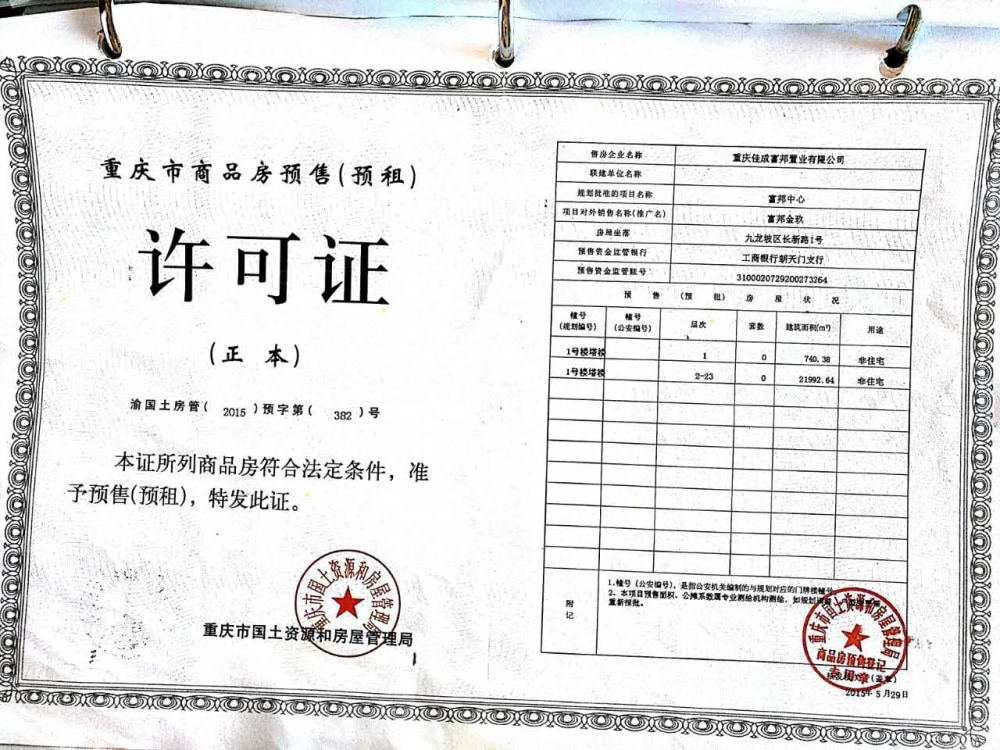 重庆市商品房预售(预租)
许可证
(正本)
渝国土房管( 2015 )预字第( 382 )号
本证所列商品房符合法定条件，准
予预售(预租)，特发此证。
重庆市国土资源和房屋管理局
重庆市国土资源和房屋管理局
售房企业名称 重庆佳成富邦置业有限公司
联建单位名称
规划批准的项目名称 富邦中心
项目对外销售名称(推广名) 富邦金玖
房屋坐落 九龙坡区长新路1号
预售资金监管银行 工商银行朝天门支行
预售资金监管账号 3100020729200273264
预 售 (预 租) 房 屋 状 况
幢号(规划编号) 幢号(公安编号) 层次 套数 建筑面积(m²) 用途
1号楼塔楼 1 0 740.38 非住宅
1号楼塔楼 2-23 0 21992.64 非住宅
附记
1.幢号（公安编号），是指公安机关编制的与规划对应的门牌楼幢号。
2、本项目预售面积、公摊系数属专业测绘机构测绘，如规划
重新报批。
重庆市国土资源和房屋管理局
商品房预售登记
专用章
(盖章)
2015年5月29日